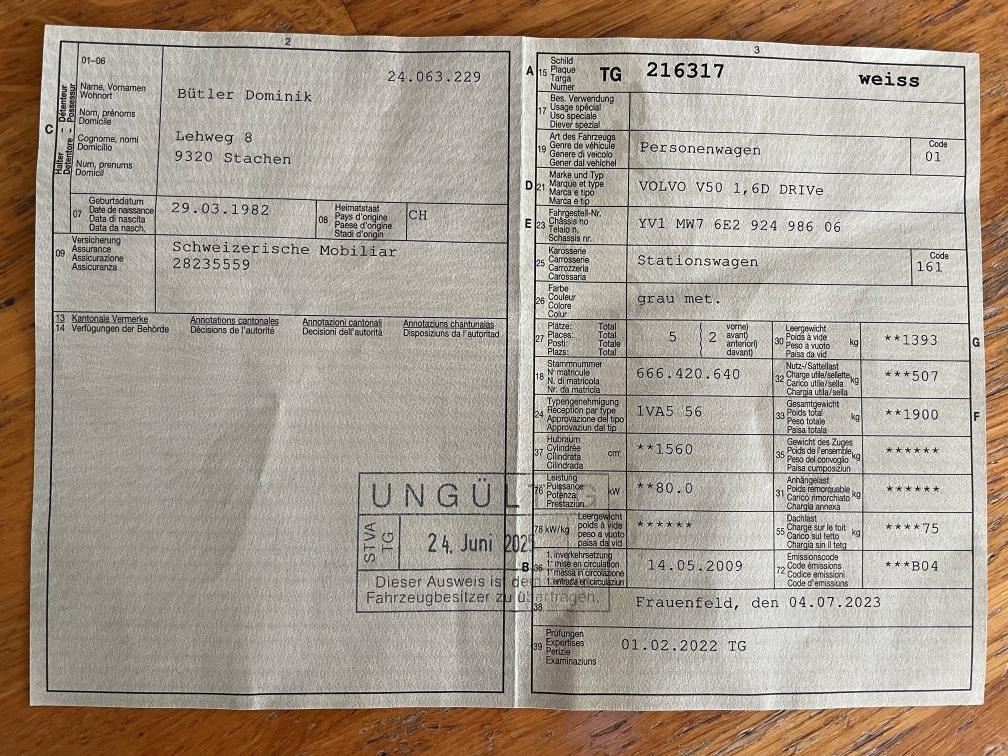 2
01-06
24.063.229
C
Halter – Détenteur
Detentore – Possessur
Name, Vornamen
Wohnort
Nom, prénoms
Domicile
Cognome, nomi
Domicilio
Num, prenums
Domicil
Bütler Dominik
Lehweg 8
9320 Stachen
07
Geburtsdatum
Date de naissance
Data di nascita
Data da nasch.
29.03.1982
08
Heimatstaat
Pays d'origine
Paese d'origine
Stadi d'origin
CH
09
Versicherung
Assurance
Assicurazione
Assicuranza
Schweizerische Mobiliar
28235559
13 Kantonale Vermerke Annotations cantonales Annotazioni cantonali Annotaziuns chantunalas
14 Verfügungen der Behörde Décisions de l'autorité Decisioni dell'autorità Disposiziuns da l'autoritad
UNGÜLTIG
STVA
TG
24. Juni 2025
Dieser Ausweis ist dem
Fahrzeugbesitzer zu übertragen.
3
A
15
Schild
Plaque
Targa
Numer
TG 216317 weiss
17
Bes. Verwendung
Usage spécial
Uso speciale
Diever spezial
19
Art des Fahrzeugs
Genre de véhicule
Genere di veicolo
Gener dal vehichel
Personenwagen
Code
01
D
21
Marke und Typ
Marque et type
Marca e tipo
Marca e tip
VOLVO V50 1,6D DRIVe
E
23
Fahrgestell-Nr.
Châssis no
Telaio n.
Schassis nr.
YV1 MW7 6E2 924 986 06
25
Karosserie
Carrosserie
Carrozzeria
Carossaria
Stationswagen
Code
161
26
Farbe
Couleur
Colore
Colur
grau met.
27
Plätze: Total
Places: Total
Posti: Totale
Plazs: Total
5 2
vorne)
avant)
anteriori)
davant)
30
Leergewicht
Poids à vide
Peso a vuoto
Paisa da vid
kg
**1393
G
18
Stammnummer
N° matricule
N. di matricola
Nr. da matricla
666.420.640
32
Nutz-/Sattellast
Charge utile/sellette
Carico utile/sella
Chargia utila/sella
kg
***507
24
Typengenehmigung
Réception par type
Approvazione del tipo
Approvaziun dal tip
1VA5 56
33
Gesamtgewicht
Poids total
Peso totale
Paisa totala
kg
**1900
F
37
Hubraum
Cylindrée
Cilindrata
Cilindrada
cm³
**1560
35
Gewicht des Zuges
Poids de l'ensemble
Peso del convoglio
Paisa cumposiziun
kg
******
76
Leistung
Puissance
Potenza
Prestaziun
kW
**80.0
31
Anhängelast
Poids remorquable
Carico rimorchiato
Chargia annexa
kg
******
78 kW/kg
Leergewicht
poids à vide
peso a vuoto
paisa da vid
******
55
Dachlast
Charge sur le toit
Carico sul tetto
Chargia sin il tetg
kg
****75
B
36
1. Inverkehrsetzung
1re mise en circulation
1a messa in circolazione
1. entrada en circulaziun
14.05.2009
72
Emissionscode
Code émissions
Codice emissioni
Code d'emissiuns
***B04
38
Frauenfeld, den 04.07.2023
39
Prüfungen
Expertises
Perizie
Examinaziuns
01.02.2022 TG